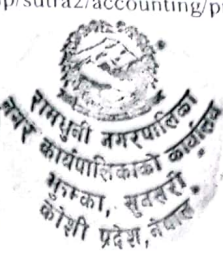 p/sutra2/accounting/p
रामधुनी नगरपालिका
नगर कार्यपालिकाको कार्यालय
भुटाहा, सुनसरी
कोशी प्रदेश, नेपाल